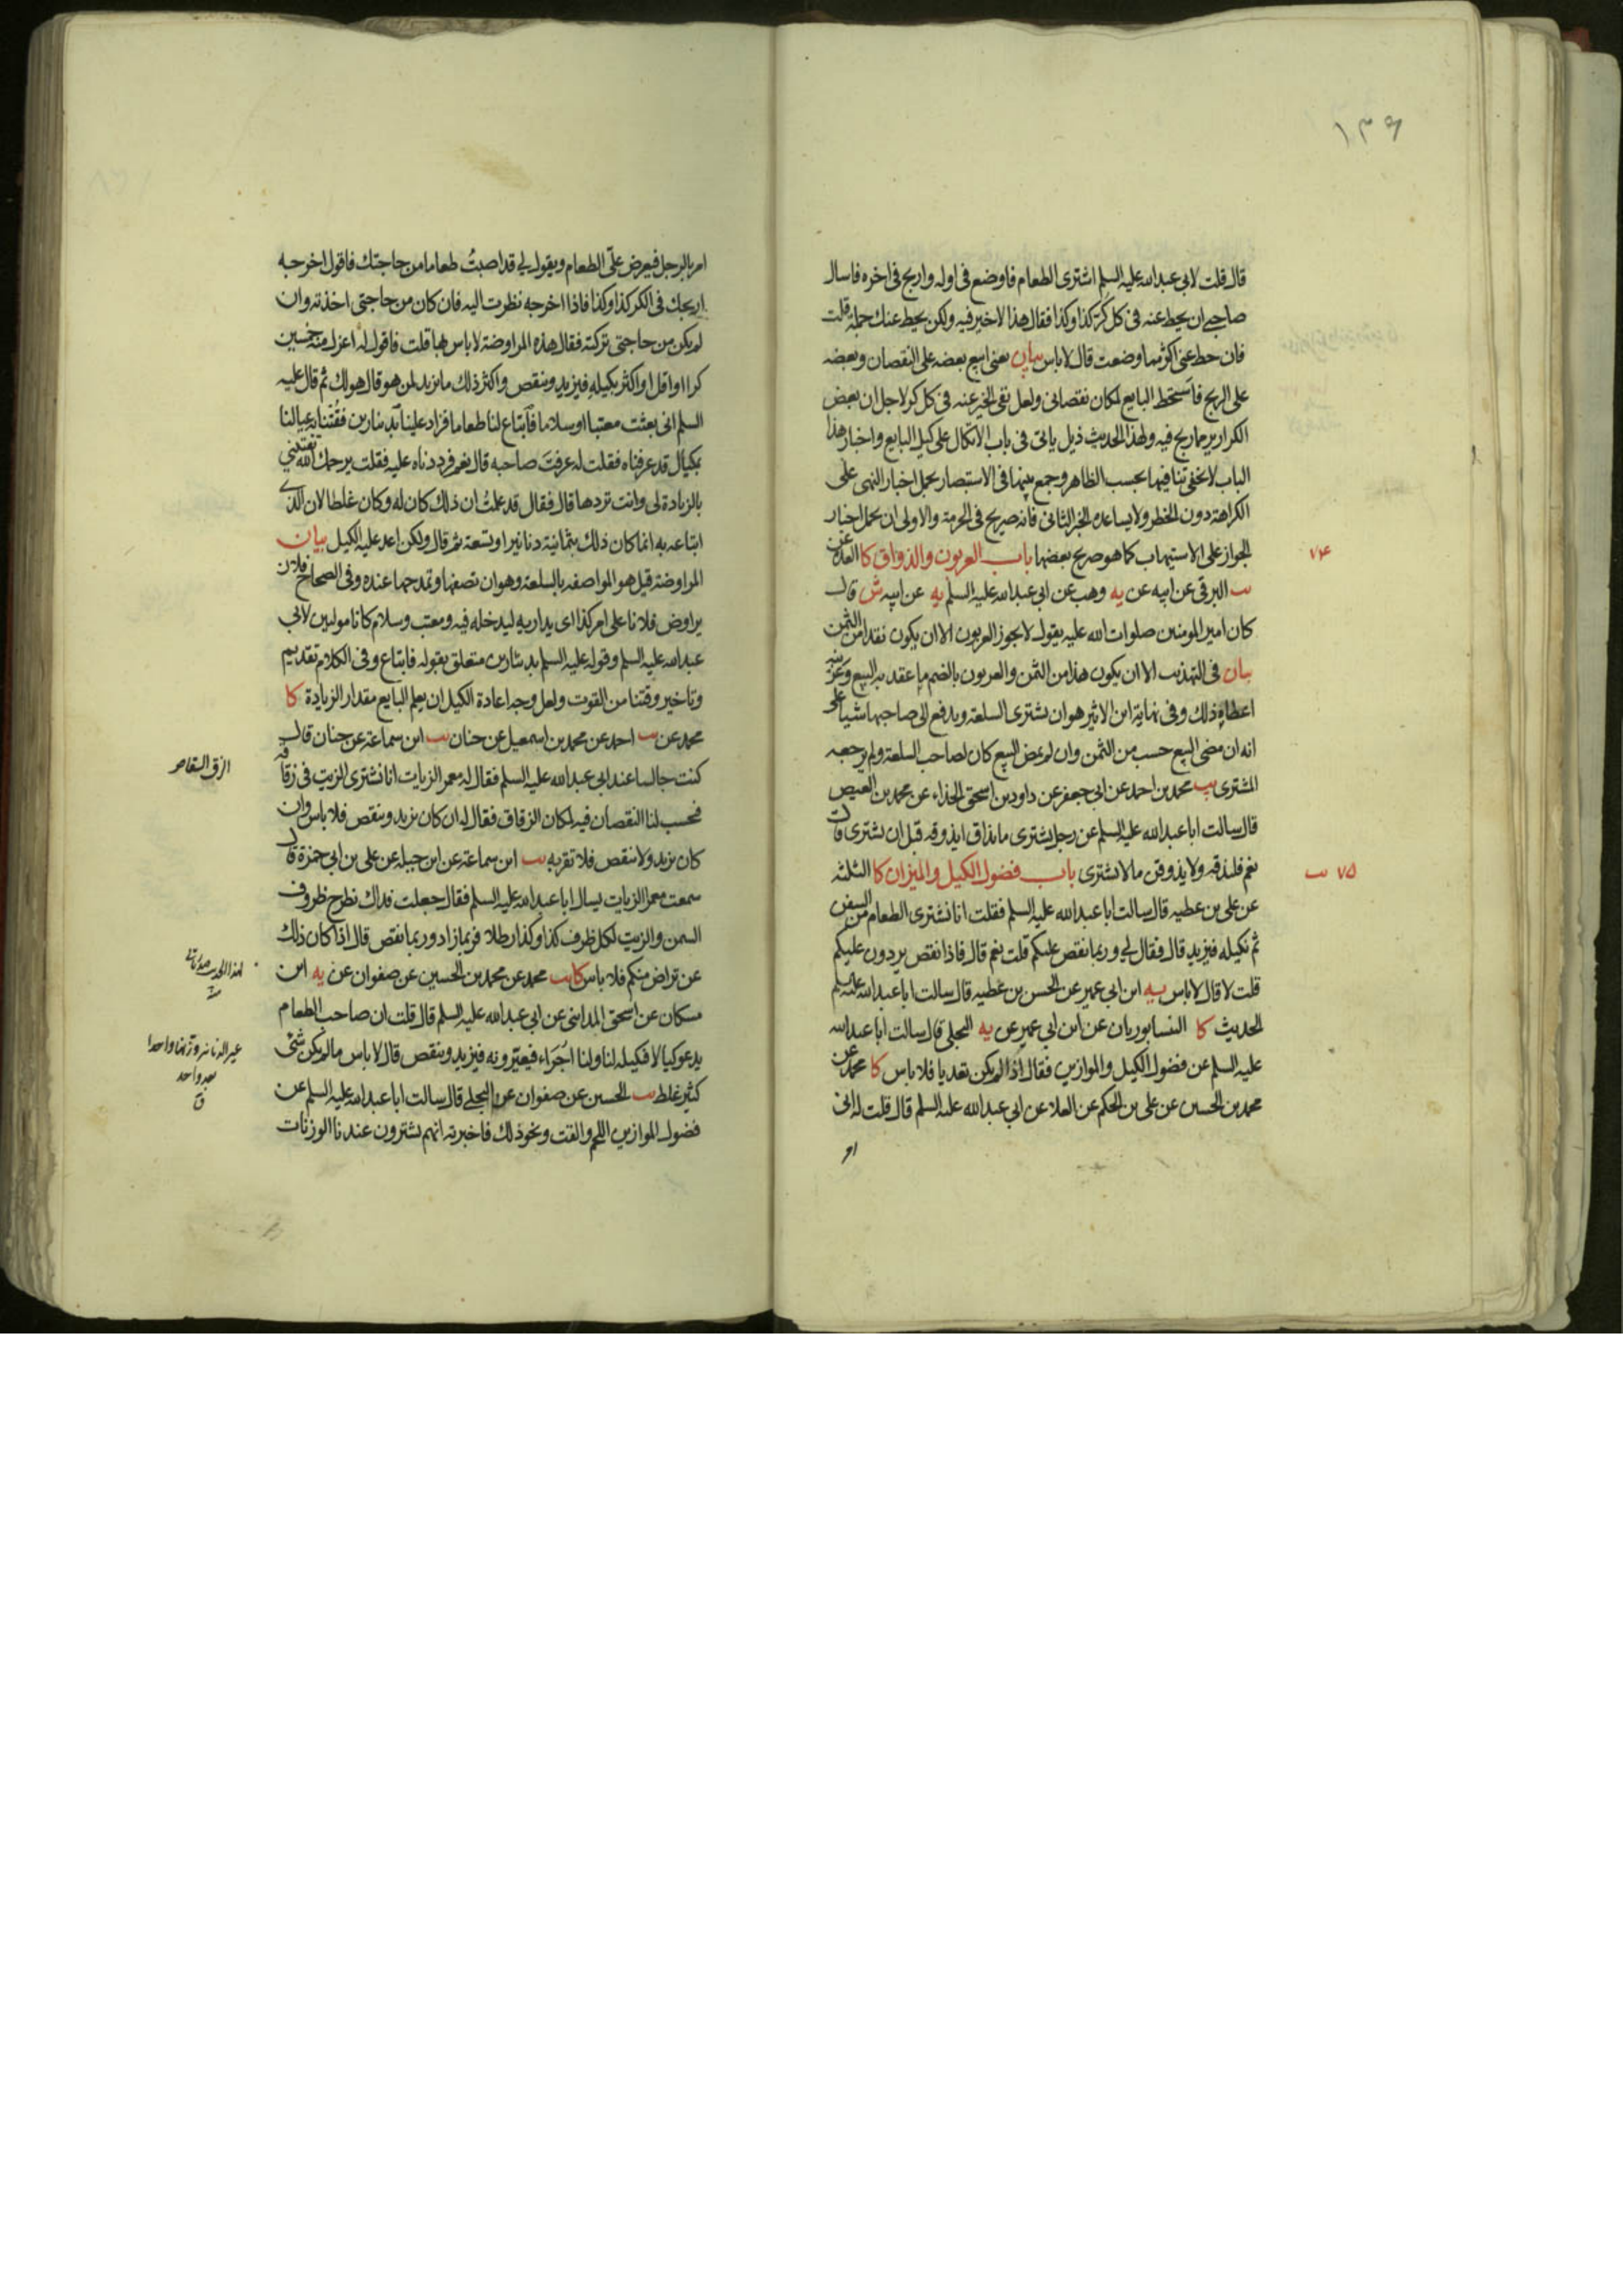 ١٣٦
قال قلت لابي عبدالله عليه السلم اشترى الطعام فاوضع فى اوله واربح فى اخره فاسال
صاحبى ان يحط عنه فى كل كر كذا وكذا فقال هذا لاخير فيه ولكن يحط عنك جملة قلت
فان حط عنى اكثر مما وضعت قال لاباس بيان يعنى ابيع بعضه على النقصان وبعضه
على الربح فاستحط البايع لمكان نقصانى ولعل نفى الخير عنه فى كل كر لاجل ان بعض
الكرار يربح فيه ولهذا الحديث ذيل ياتى فى باب الاتكال على كيل البايع واخبار هذا
الباب لا يخفى تنافيها بحسب الظاهر وجمع بينها فى الاستبصار بحمل اخبار النهى على
الكراهة دون الحظر ولا يساعده الخبر الثانى فانه صريح فى الحرمة والاولى ان يحمل اخبار
الجواز على الاستيهاب كما هو صريح بعضها باب العربون والذواق كا العدة عن
٧٤
يب البرقى عن ابيه عن يه وهب عن ابى عبدالله عليه السلم يه عن ابيه ش قال
كان امير المومنين صلوات الله عليه يقول لا يجوز العربون الا ان يكون نقدا من الثمن
بيان فى التهذيب الا ان يكون هذا من الثمن والعربون بالضم ما عقد به البيع وعربنه
اعطاه ذلك وفى نهاية ابن الاثير هو ان يشترى السلعة ويدفع الى صاحبها شيئا على
انه ان مضى البيع حسب من الثمن وان لم يمض البيع كان لصاحب السلعة ولم يرجعه
المشترى يب محمد بن احمد عن ابى جعفر عن داود بن اسحق الحذاء عن محمد بن العيص
قال سالت ابا عبدالله عليه السلم عن رجل يشترى ما يذاق ايذوقه قبل ان يشترى قال
نعم فليذقه ولا يذوقن ما لا يشترى باب فضول الكيل والميزان كا الثلثة
٧٥ يب
عن على بن عطيه قال سالت ابا عبدالله عليه السلم فقلت انا نشترى الطعام من السفن
ثم نكيله فيزيد قال فقال لى وربما نقص عليكم قلت نعم قال فاذا نقص يردون عليكم
قلت لا قال لا باس يه ابن ابى عمير عن الحسن بن عطيه قال سالت ابا عبدالله عليه السلم
الحديث كا النيسابوريان عن ابن ابى عمير عن يه البجلى قال سالت ابا عبدالله
عليه السلم عن فضول الكيل والموازين فقال اذا لم يكن تعديا فلا باس كا محمد عن
محمد بن الحسين عن على بن الحكم عن العلا عن ابى عبدالله عليه السلم قال قلت له انى
امر
امر بالرجل فيعرض على الطعام ويقول لى قد اصبت طعاما من حاجتك فاقول اخرجه
اربحك فى الكر كذا وكذا فاذا اخرجه نظرت اليه فان كان من حاجتى اخذته وان
لم يكن من حاجتى تركته فقال هذه المراوضة لا باس بها قلت فاقول له اعزل منه خمسين
كرا او اقل او اكثر بكيله فيزيد وينقص واكثر ذلك ما يزيد لمن هو قال هو لك ثم قال عليه
السلم انى بعثت معتبا او سلاما فابتاع لنا طعاما فزاد علينا بدينارين فقتنا به عيالنا
بمكيال قد عرفناه فقلت له عرفت صاحبه قال نعم فرددناه عليه فقلت يرحمك الله تفتينى
بالزيادة لى وانت تردها قال فقال قد علمت ان ذلك كان له وكان غلطا لان الذى
ابتاعه به انما كان ذلك بثمانية دنانير او تسعة ثم قال ولكن اعد عليه الكيل بيان
المراوضة قيل هو المواصفه بالسلعة وهو ان تصفها وتمدحها عنده وفى الصحاح فلان
يراوض فلانا على امر كذا اى يداريه ليدخله فيه ومعتب وسلام كانا موليين لابى
عبدالله عليه السلم وقوله عليه السلم بدينارين متعلق بقوله فابتاع وفى الكلام تقديم
وتاخير وقتنا من القوت ولعل وجه اعادة الكيل ان يعلم البايع مقدار الزيادة كا
محمد عن يب احمد عن محمد بن اسمعيل عن حنان يب ابن سماعة عن حنان قال
كنت جالسا عند ابى عبدالله عليه السلم فقال له معمر الزيات انا نشترى الزيت فى زقاقه
الزق السقا
فيحسب لنا النقصان فيه لمكان الزقاق فقال له ان كان يزيد وينقص فلا باس وان
كان يزيد ولا ينقص فلا تقربه يب ابن سماعة عن ابن جبله عن على بن ابى حمزة قال
سمعت معمر الزيات يسال ابا عبدالله عليه السلم فقال جعلت فداك نطرح ظروف
السمن والزيت لكل ظرف كذا وكذا رطلا فربما زاد وربما نقص قال اذا كان ذلك
عن تراض منكم فلا باس كا يب محمد عن محمد بن الحسين عن صفوان عن يه ابن
مسكان عن اسحق المداينى عن ابى عبدالله عليه السلم قال قلت ان صاحب الطعام
يدعو كيالا فيكيله لنا ولنا اجراء فيعيرونه فيزيد وينقص قال لا باس ما لم يكن شئ
عير الدنانير وزنها واحدا
بعد واحد
ق
كثير غلط يب الحسين عن صفوان عن البجلى قال سالت ابا عبدالله عليه السلم عن
فضول الموازين اللحم والقت ونحو ذلك فاخبرته انهم يشترون عندنا الوزنات